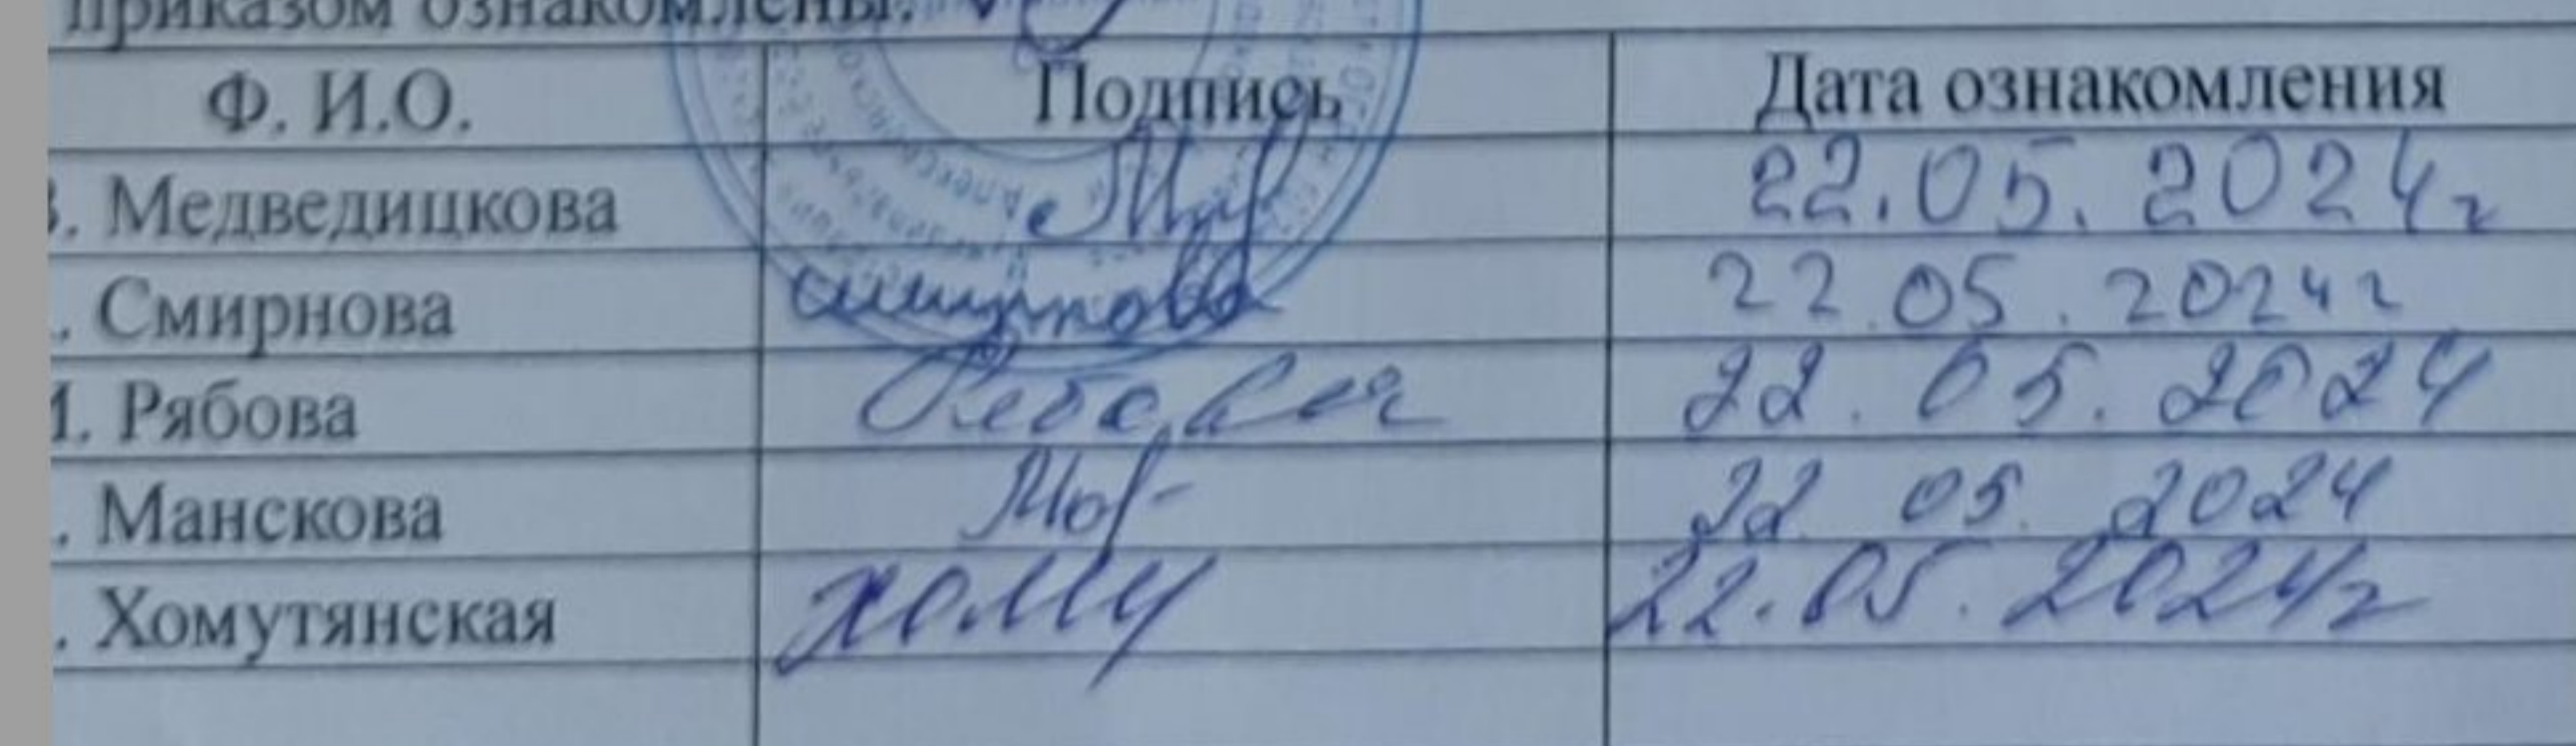 приказом ознакомлены:
Ф. И.О. Подпись Дата ознакомления
В. Медведицкова 22.05.2024г
. Смирнова Смирнова 22.05.2024г
И. Рябова 22.05.2024
. Манскова 22 05 2024
. Хомутянская Хому 22.05.2024г